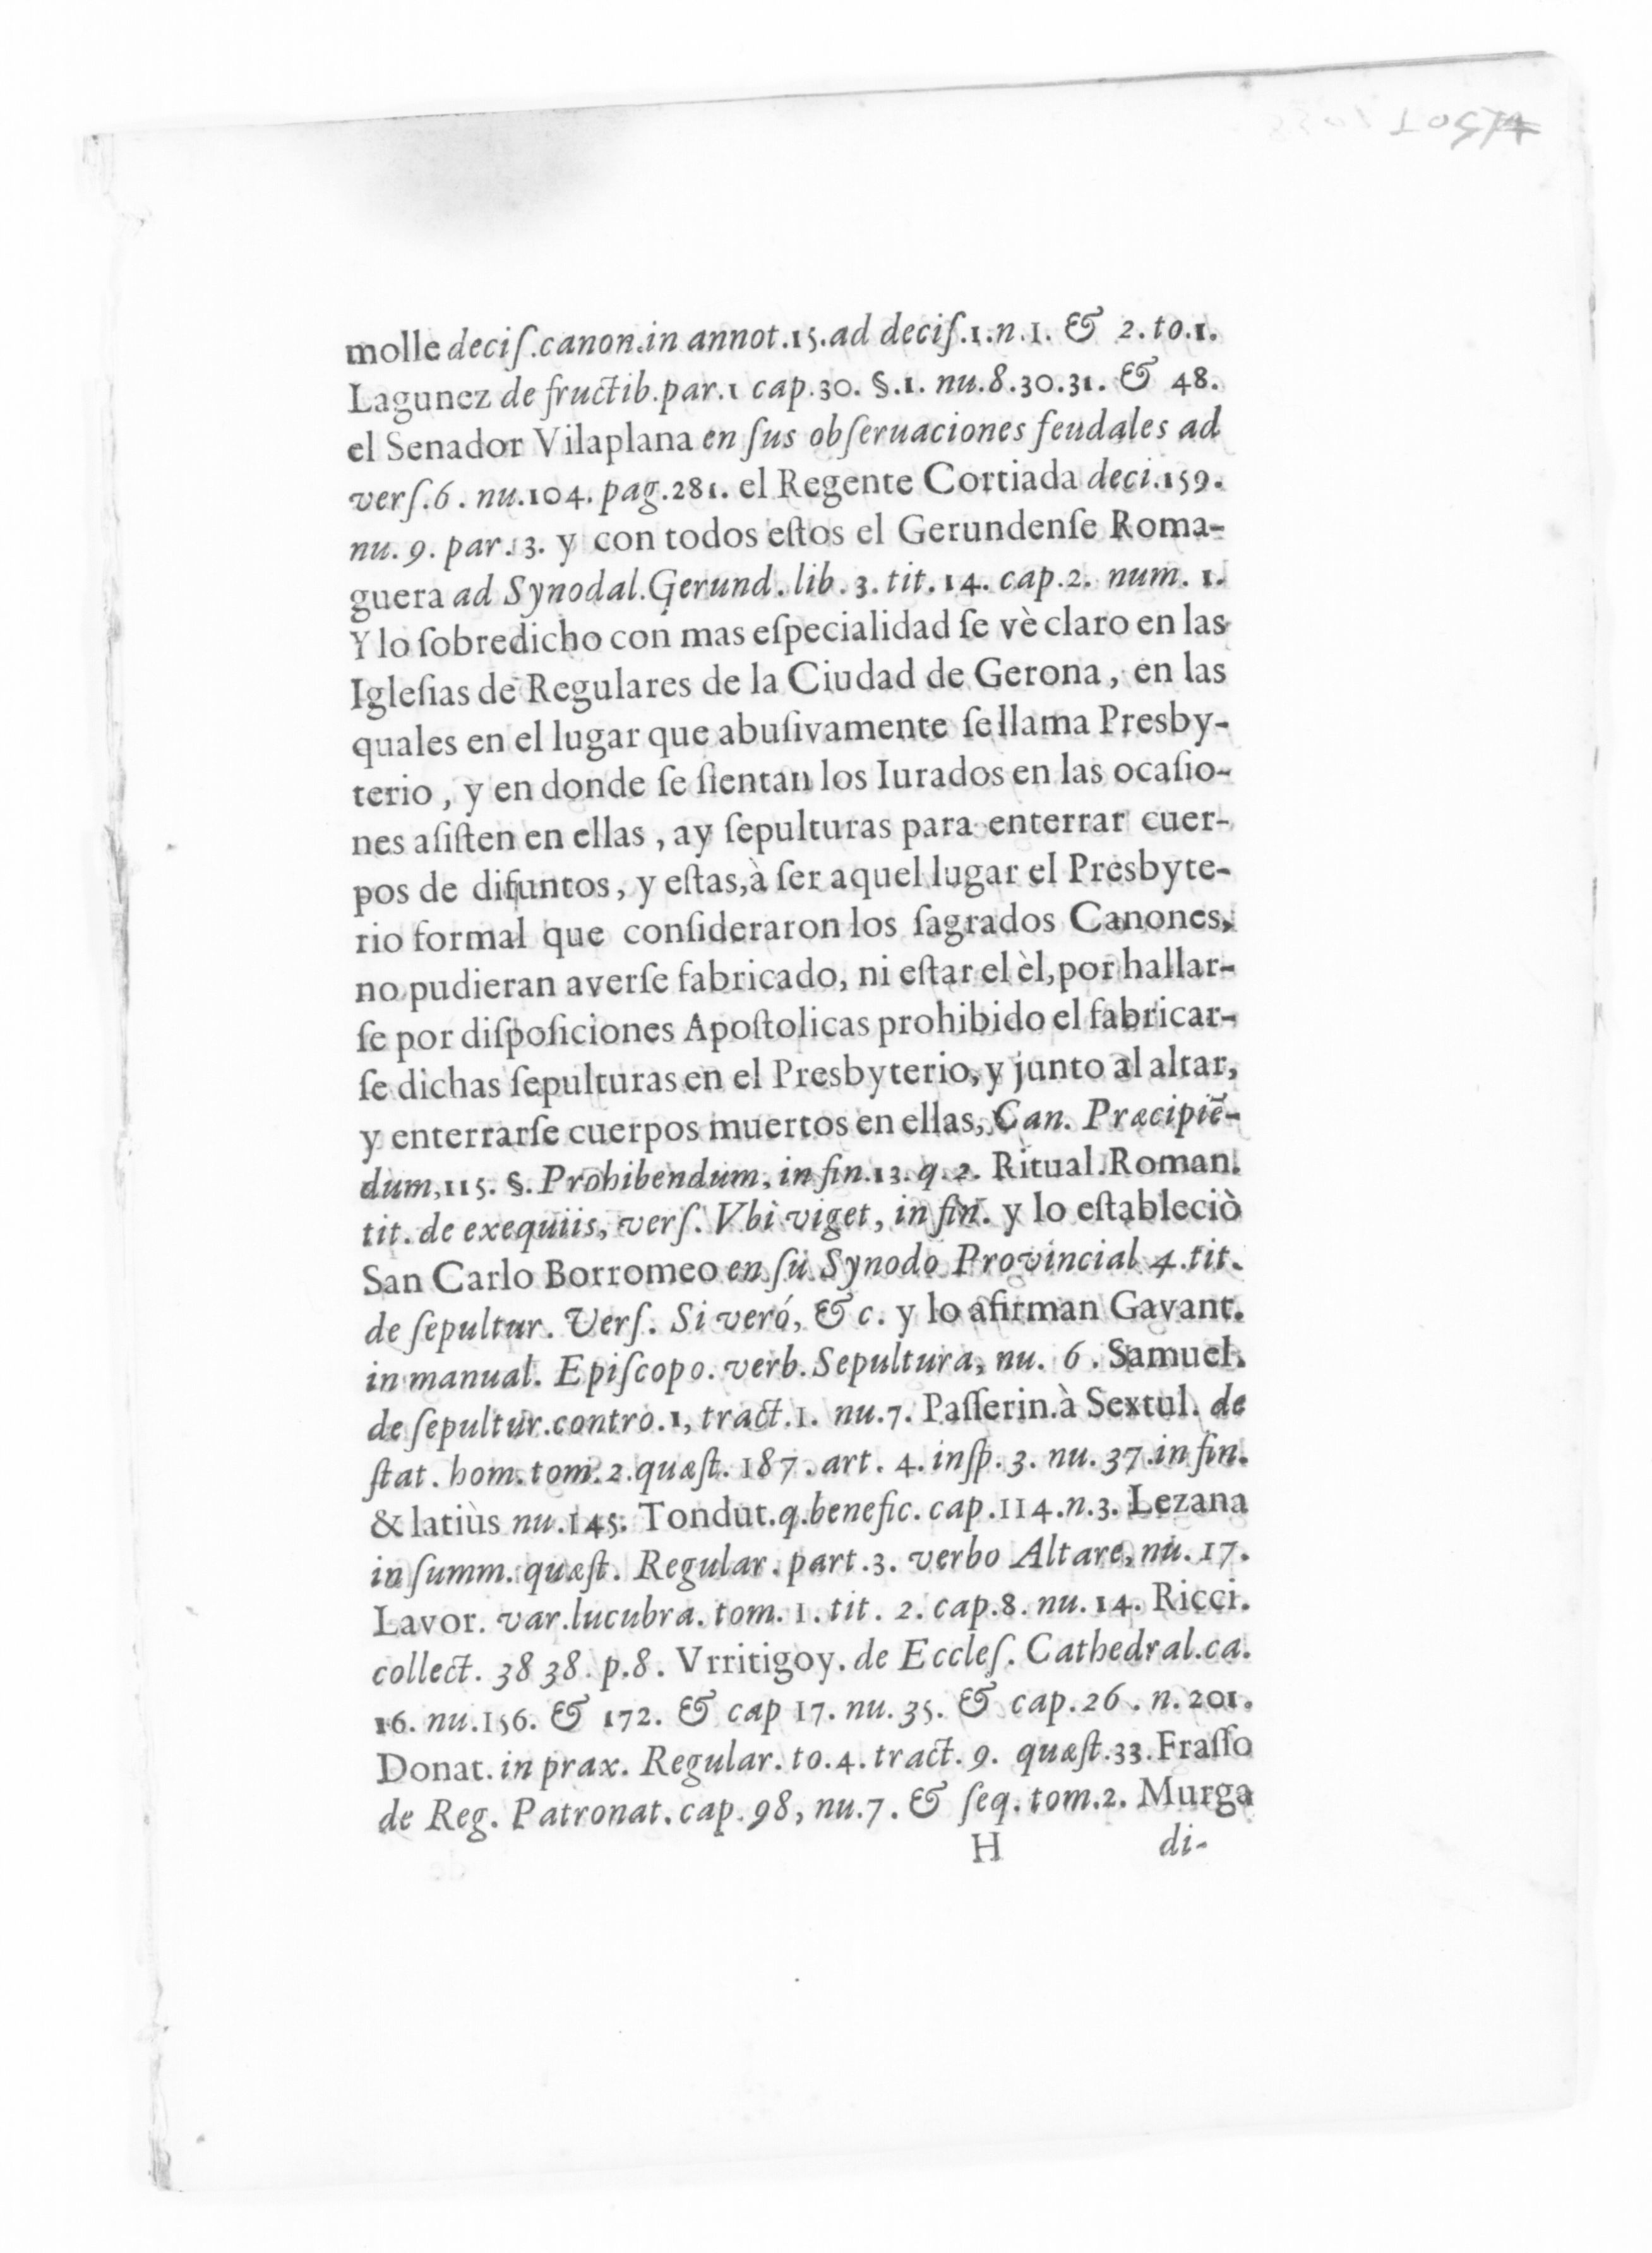 molle deciſ.canon.in annot.15.ad deciſ.1.n.1. & 2.to.1.
Lagunez de fructib.par.1 cap.30. §.1. nu.8.30.31. & 48.
el Senador Vilaplana en ſus obſeruaciones feudales ad
verſ.6. nu.104. pag.281. el Regente Cortiada deci.159.
nu. 9. par. 3. y con todos eſtos el Gerundenſe Roma-
guera ad Synodal.Gerund. lib. 3. tit. 14. cap.2. num. 1.
Y lo ſobredicho con mas eſpecialidad ſe vè claro en las
Igleſias de Regulares de la Ciudad de Gerona, en las
quales en el lugar que abuſivamente ſe llama Presby-
terio, y en donde ſe ſientan los Iurados en las ocaſio-
nes aſiſten en ellas, ay ſepulturas para enterrar cuer-
pos de difuntos, y eſtas, à ſer aquel lugar el Presbyte-
rio formal que conſideraron los ſagrados Canones,
no pudieran averſe fabricado, ni eſtar el èl, por hallar-
ſe por diſpoſiciones Apoſtolicas prohibido el fabricar-
ſe dichas ſepulturas en el Presbyterio, y junto al altar,
y enterrarſe cuerpos muertos en ellas, Can. Præcipiē-
dum, 115. §. Prohibendum, in fin.13. q. 2. Ritual.Roman.
tit. de exequiis, verſ. Vbi viget, in fin. y lo eſtableciò
San Carlo Borromeo en ſu Synodo Provincial 4. tit.
de ſepultur. Verſ. Si veró, & c. y lo afirman Gavant.
in manual. Epiſcopo. verb. Sepultura, nu. 6. Samuel.
de ſepultur.contro.1, tract.1. nu.7. Paſſerin.à Sextul. de
ſtat. hom. tom. 2.quæſt. 187. art. 4. inſp. 3. nu. 37.in fin.
& latiùs nu.145. Tondut.q.benefic. cap.114.n.3. Lezana
in ſumm. quæſt. Regular. part.3. verbo Altare, nu. 17.
Lavor. var.lucubra. tom. 1. tit. 2. cap.8. nu. 14. Ricci.
collect. 38 38. p.8. Vrritigoy. de Eccleſ. Cathedral.ca.
16. nu.156. & 172. & cap 17. nu. 35. & cap.26. n. 201.
Donat. in prax. Regular. to.4. tract. 9. quæſt.33. Fraſſo
de Reg. Patronat. cap.98, nu.7. & ſeq. tom.2. Murga
H di-